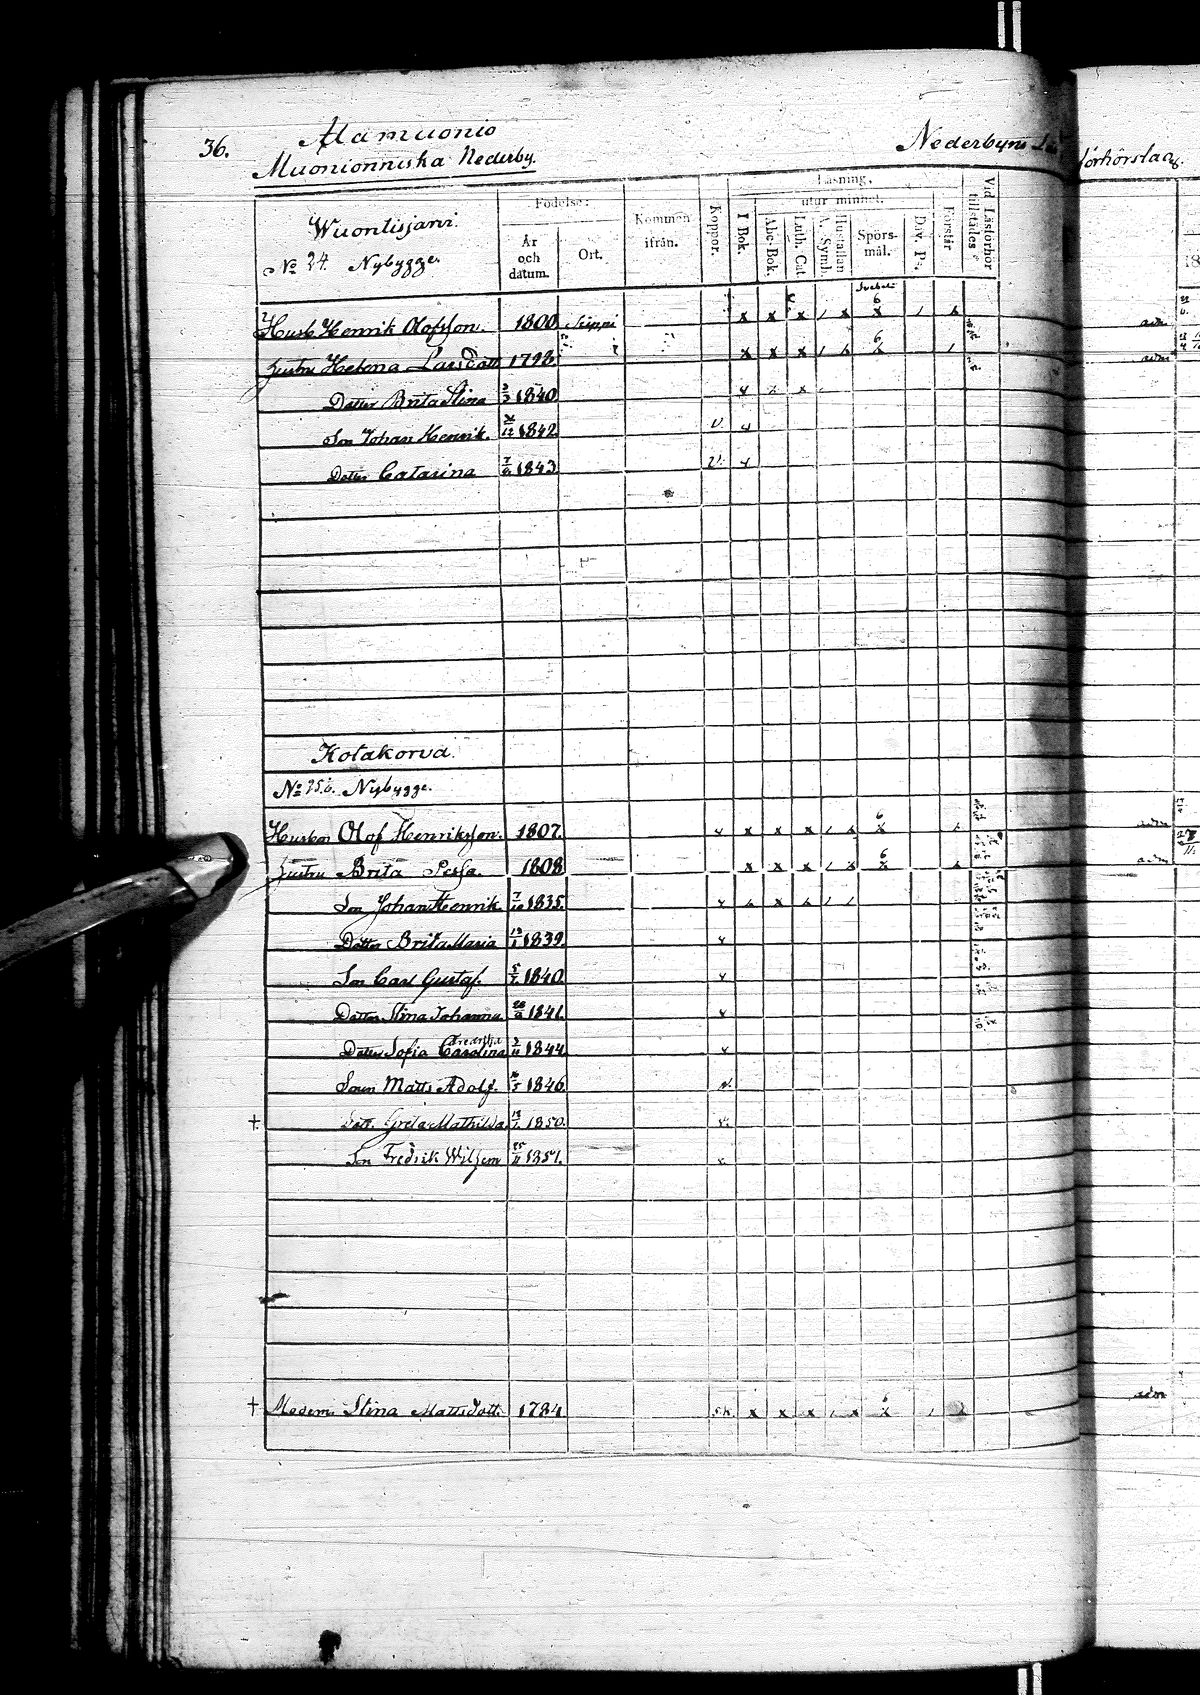 36.
Alamuonio
Muonionniska Nederby.
Nederbyns
förhörslag.
Wuontisjärvi.
No 24. Nybygge.
Födelse:
År och datum.
Ort.
Kommen ifrån.
Koppor.
Läsning,
utur minnet.
I Bok.
Abc-Bok.
Luth. Cat.
A. Symb.
Hustaflan
Spörs-mål.
Dav. Ps.
Förstår
Vid Läsförhör tillstädes
18
Husb Henrik Olofsson. 1800 x x x / x 6 x / x
hustru Helena Larsdott 1793. x x x / x 6 x /
Dotter Brita Stina 3/3 1840
Son Johan Henrik. /12 1842 v.
Dotter Catarina 7/ 1843 v.
Kotakorva.
No 25. Nybygge.
Husbn Olof Henriksson. 1807. x x x / x 6 x
hustru Brita 1808 x x x / x 6 x
Son Johan Henrik 7/10 1835.
Dotter Brita Maria 13/1 1839
Son Carl Gustaf. 5/7 1840.
Dotter Stina Johanna 1841.
Dotter Sofia Carolina Fredrika 3/11 1844
Sonen Matts Adolf. /5 1846.
†. Dott. Greta Mathilda 1850.
Son Fredrik Wilhem 25/11 1851.
† Modern Stina Mattsdott. 1784 x x x / x 6 x /